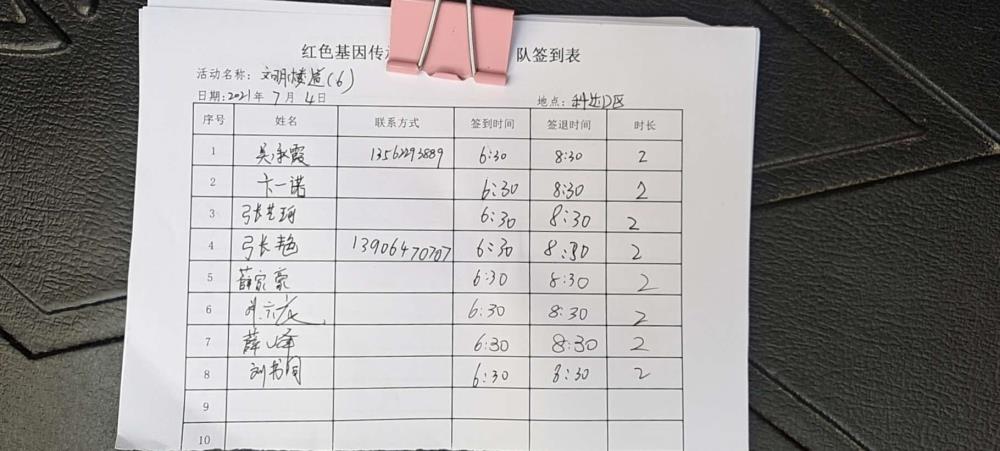 红色基因传 队签到表
活动名称：文明楼道(6)
日期:2021年 7月 4日 地点：科达D区
序号 姓名 联系方式 签到时间 签退时间 时长
1 吴承霞 13562293889 6:30 8:30 2
2 卞一诺 6:30 8:30 2
3 张艺珂 6:30 8:30 2
4 张艳 13906470707 6:30 8:30 2
5 薛家豪 6:30 8:30 2
6 6:30 8:30 2
7 薛峰 6:30 8:30 2
8 刘书同 6:30 8:30 2
9
10